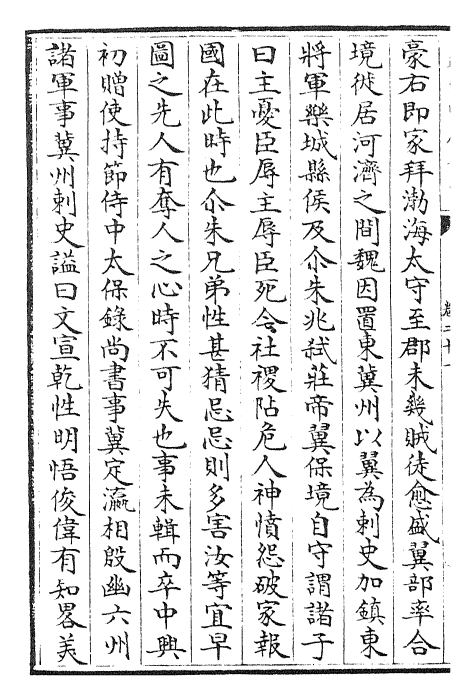 豪右即家拜渤海太守至郡未幾賊徒愈盛翼部率合
境徙居河濟之間魏因置東冀州以翼為刺史加鎮東
將軍樂城縣侯及尒朱兆弑莊帝翼保境自守謂諸子
曰主憂臣辱主辱臣死今社稷阽危人神憤怨破家報
國在此時也尒朱兄弟性甚猜忌忌則多害汝等宜早
圖之先人有奪人之心時不可失也事未輯而卒中興
初贈使持節侍中太保錄尚書事冀定瀛相殷幽六州
諸軍事冀州刺史諡曰文宣乾性明悟俊偉有知畧美